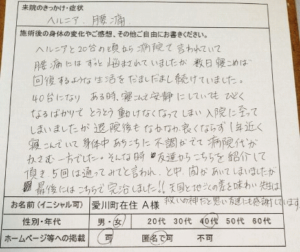 来院のきっかけ・症状
ヘルニア 腰痛
施術後の身体の変化やご感想、その他ご自由にお書きください。
ヘルニアと20台の頃から病院で言われていて
腰痛にはずっと悩まされていましたが数日寝こめば
回復するような生活をだましだまし続けていました。
40台になり ある時、寝こんで安静にしていても ひどく
なるばかりで とうとう動けなくなってしまい入院に至って
しまいましたが 退院後も なかなか良くならず 1年近く
寝こんでいて身体中あちこちに不調がでて病院代が
かさむ一方でした。そんな時 友達からこちらを紹介して
頂き 5回は通ってみてと言われ、と中 間があいてしまいましたが
最後にはこちらで完治しました!!
お名前(イニシャル可) 愛川町在住 A様
性別・年代 男・女 20代 30代 40代 50代 60代
ホームページ等への掲載 可 匿名で可 不可